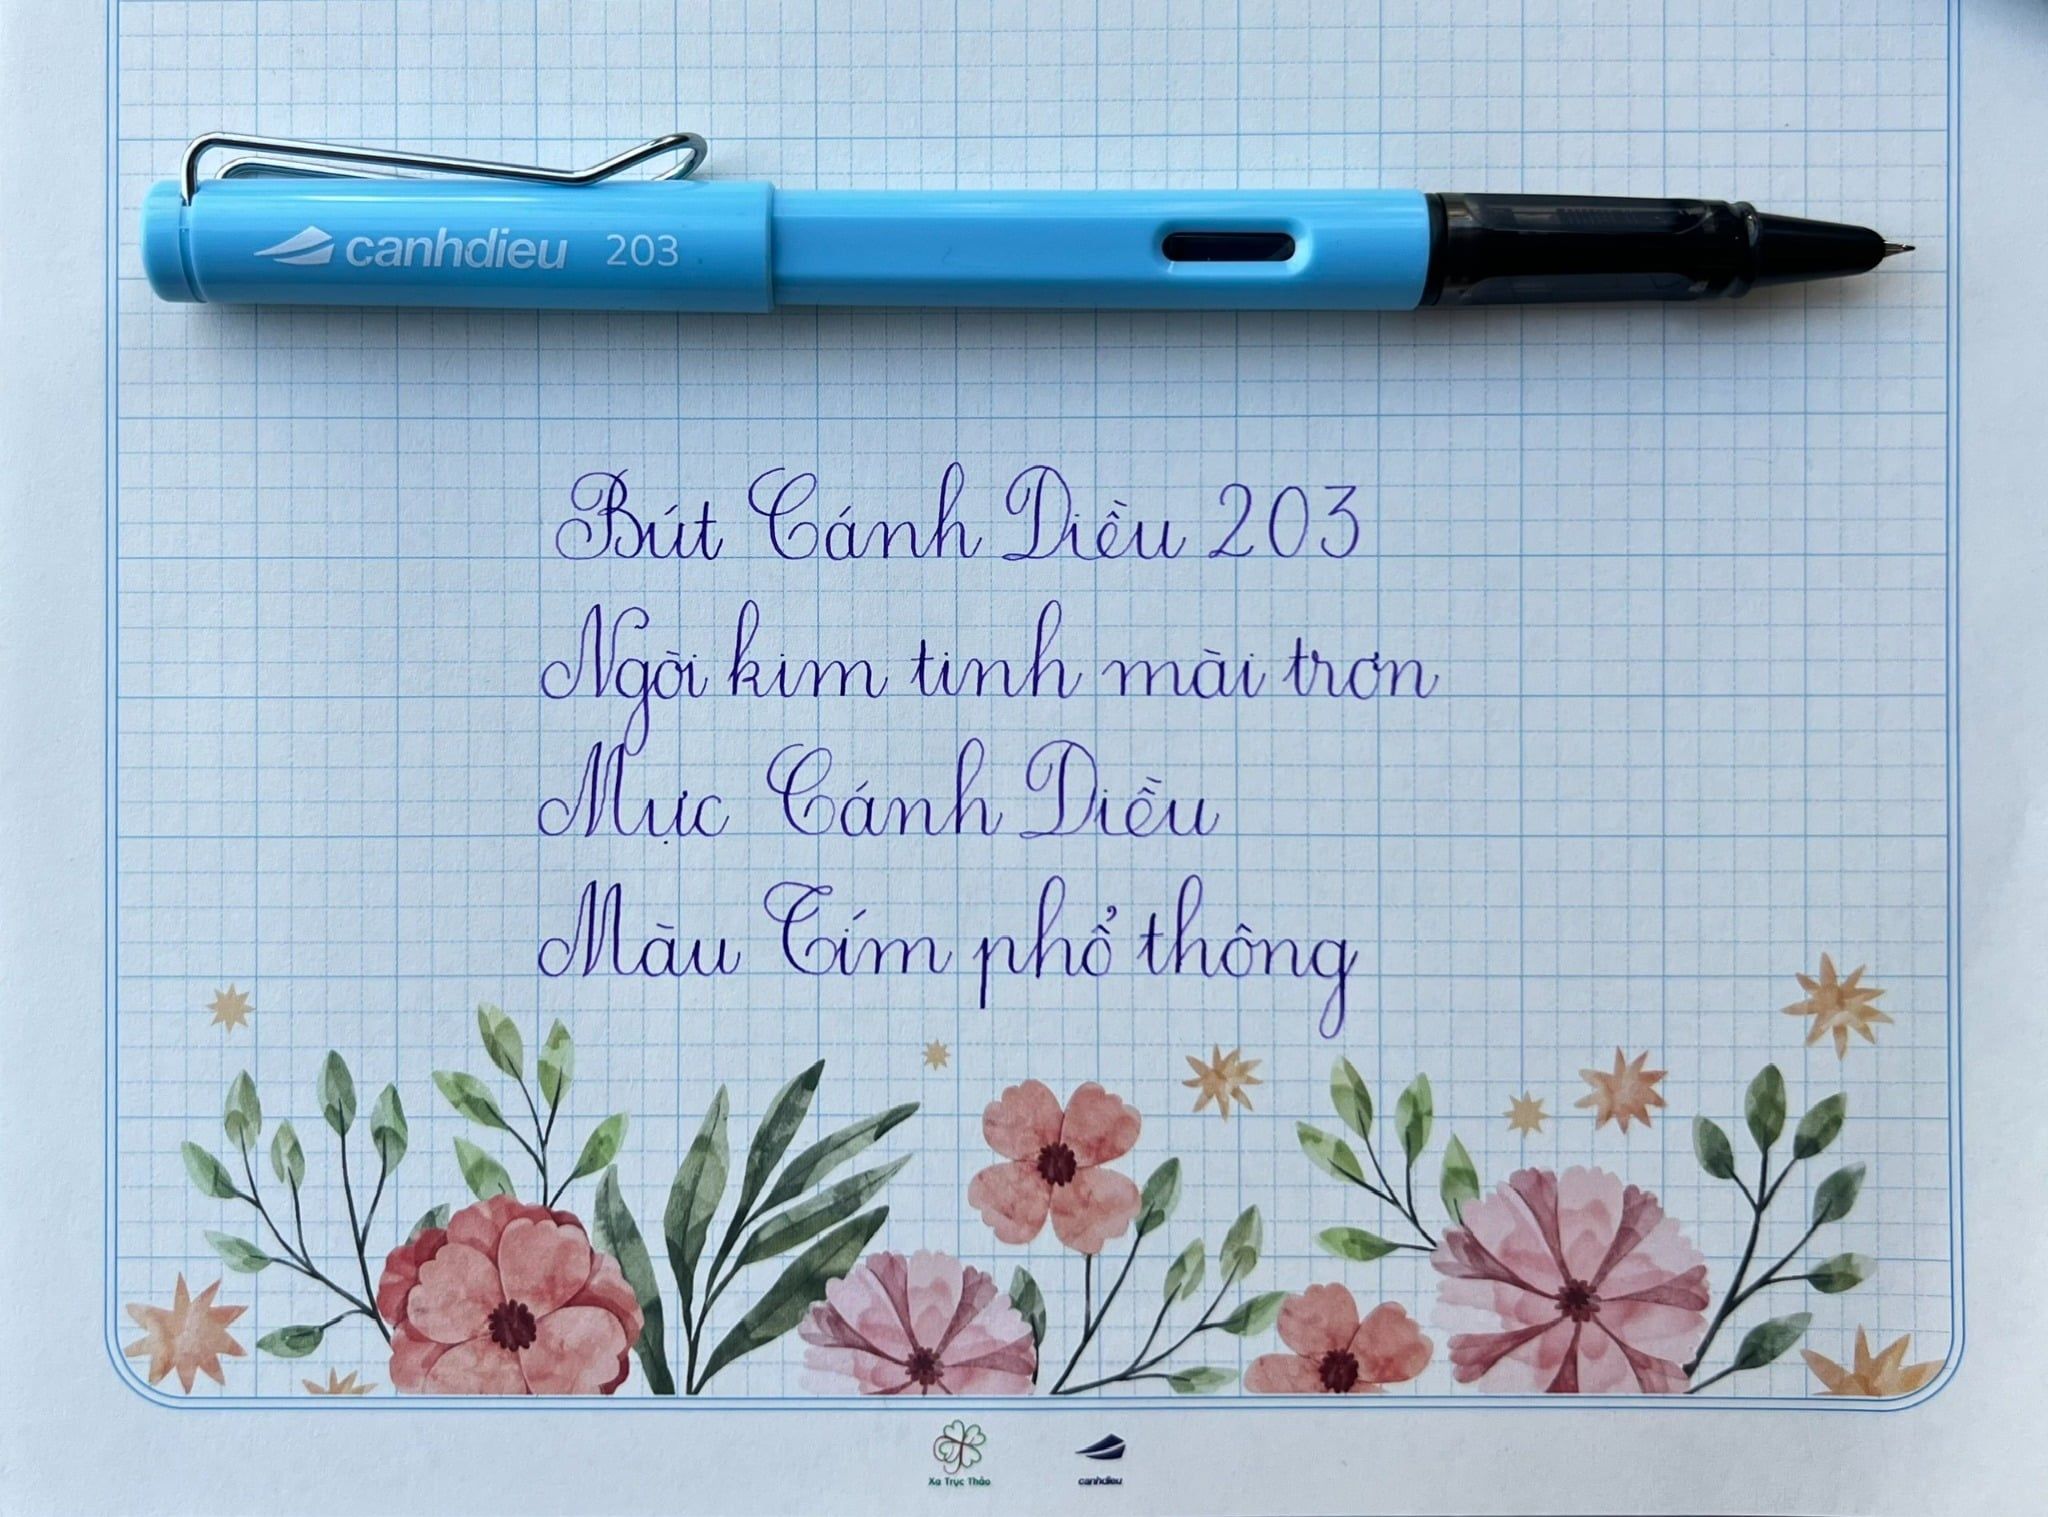 canhdieu 203
Bút Cánh Diều 203
Ngòi kim tinh mài trơn
Mực Cánh Diều
Màu Tím phổ thông
Xạ Trục Thảo
canhdieu